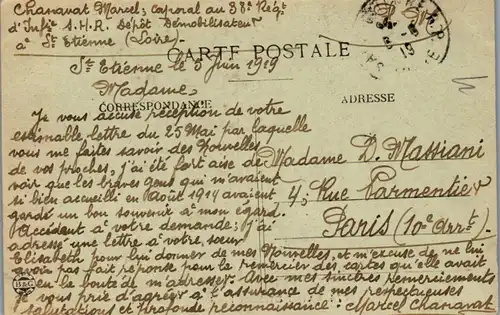 Chanavat Marcel; Caporal au 38e Régt
d'Infie S.H.R. Dépôt Démobilisateur
à St Etienne (Loire).
CARTE POSTALE
St Etienne le 5 Juin 1919
Madame,
CORRESPONDANCE
ADRESSE
Je vous accuse réception de votre
estimable lettre du 25 Mai par laquelle
vous me faites savoir des Nouvelles
de vos proches; j'ai été fort aise de
voir que les braves gens qui m'avaient
si bien accueilli en Août 1914 avaient
gardé un bon souvenir à mon égard.
Accédant à votre demande; j'ai
adressé une lettre à votre sœur
Elisabeth pour lui donner de mes Nouvelles, et m'excuse de ne lui
avoir pas fait réponse pour le remercier des cartes qu'elle avait
eu la bonté de m'adresser. Avec mes sincères remerciements
je vous prie d'agréer à l'assurance de mes respectueuses
salutations et profonde reconnaissance: Marcel Chanavat
Madame D. Massiani
4, Rue Parmentier
Paris (10e Arrt).
B&G